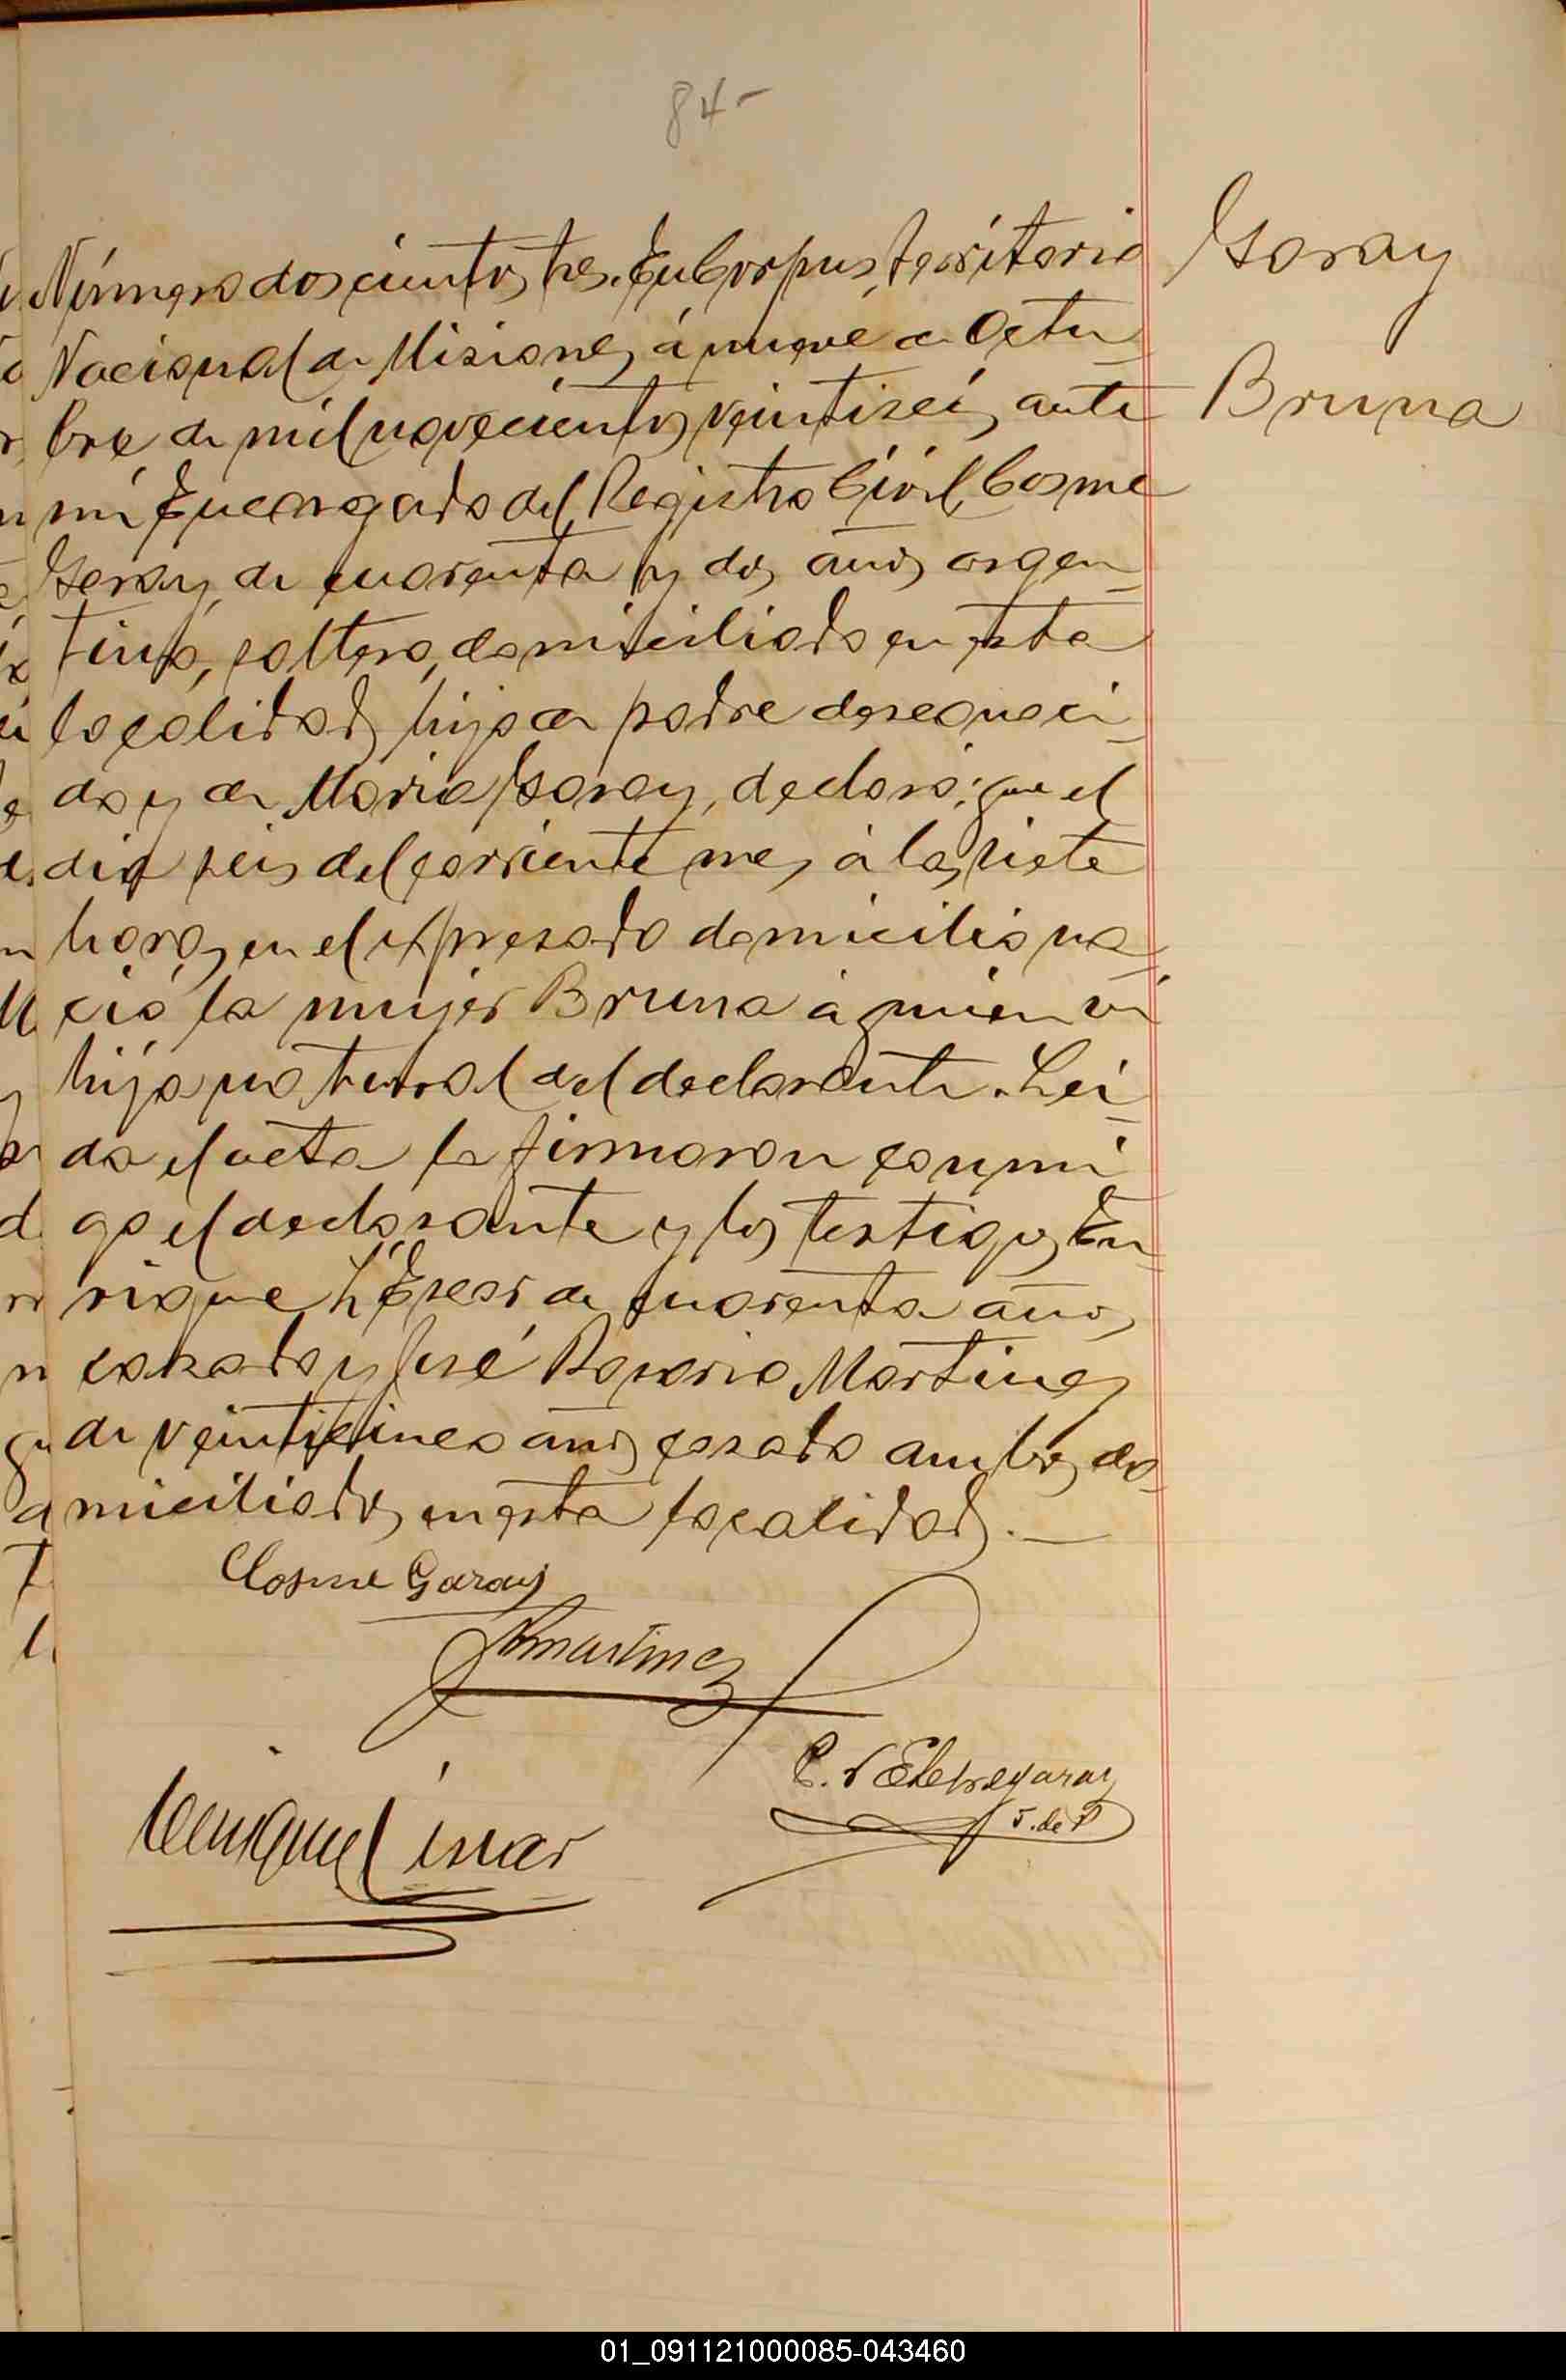 84-
Garay
Bruna
Número doscientos tres. En Corpus, territorio
Nacional de Misiones, á nueve de Octu-
bre de mil novecientos veintiseis, ante
mi Encargado del Registro Civil, Cosme
Garay, de cuarenta y dos años, argen-
tino, soltero, domiciliado en esta
localidad, hijo de padre desconoci-
do y de Maria Garay, declaró: que el
dia seis del corriente mes, á las siete
horas, en el expresado domicilio na-
ció la mujer Bruna á quien vi
hija natural del declarante. Lei-
da el acta la firmaron conmi-
go el declarante y los testigos En-
rique de cuarenta años,
casado y José Rosario Martinez
de veinticinco años, casado ambos do-
miciliados en esta localidad. —
Cosme Garay
Martinez
Etchegaray
J. de P
Enrique
01_091121000085-043460